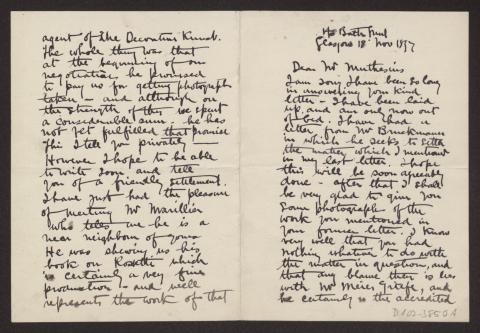 Bath Street
Glasgow 18 Nov 1897
Dear Mr Muthesius
I am sorry I have been so long
in answering your kind
letter - I have been laid
up, and am only now out
of bed. I have had a
letter from Mr Bruckmann
in which he seeks to settle
the matter which I mentioned
in my last letter. I hope
this will be soon agreeably
done - after that I shall
be very glad to give you
some photographs of the
work you mentioned in
your former letter. I know
very well that you had
nothing whatever to do with
the matter in question, and
that any blame there is lies
with Mr Meier Graefe, and
he certainly is the accredited
D102-3850A
agent of the Decorative Kunst.
The whole thing was that
at the beginning of our
negotiation he promised
to pay us for getting photographs
taken - and although on
the strength of this we spent
a considerable sum - he has
not yet fulfilled that promise
This I tell you privately -
However I hope to be able
to write soon and tell
you of a friendly settlement.
I have just had the pleasure
of meeting Mr Marillier
who tells me he is a
near neighbour of yours
He was shewing us his
book on Rossetti which
is certainly a very fine
production - and well
represents the work of that